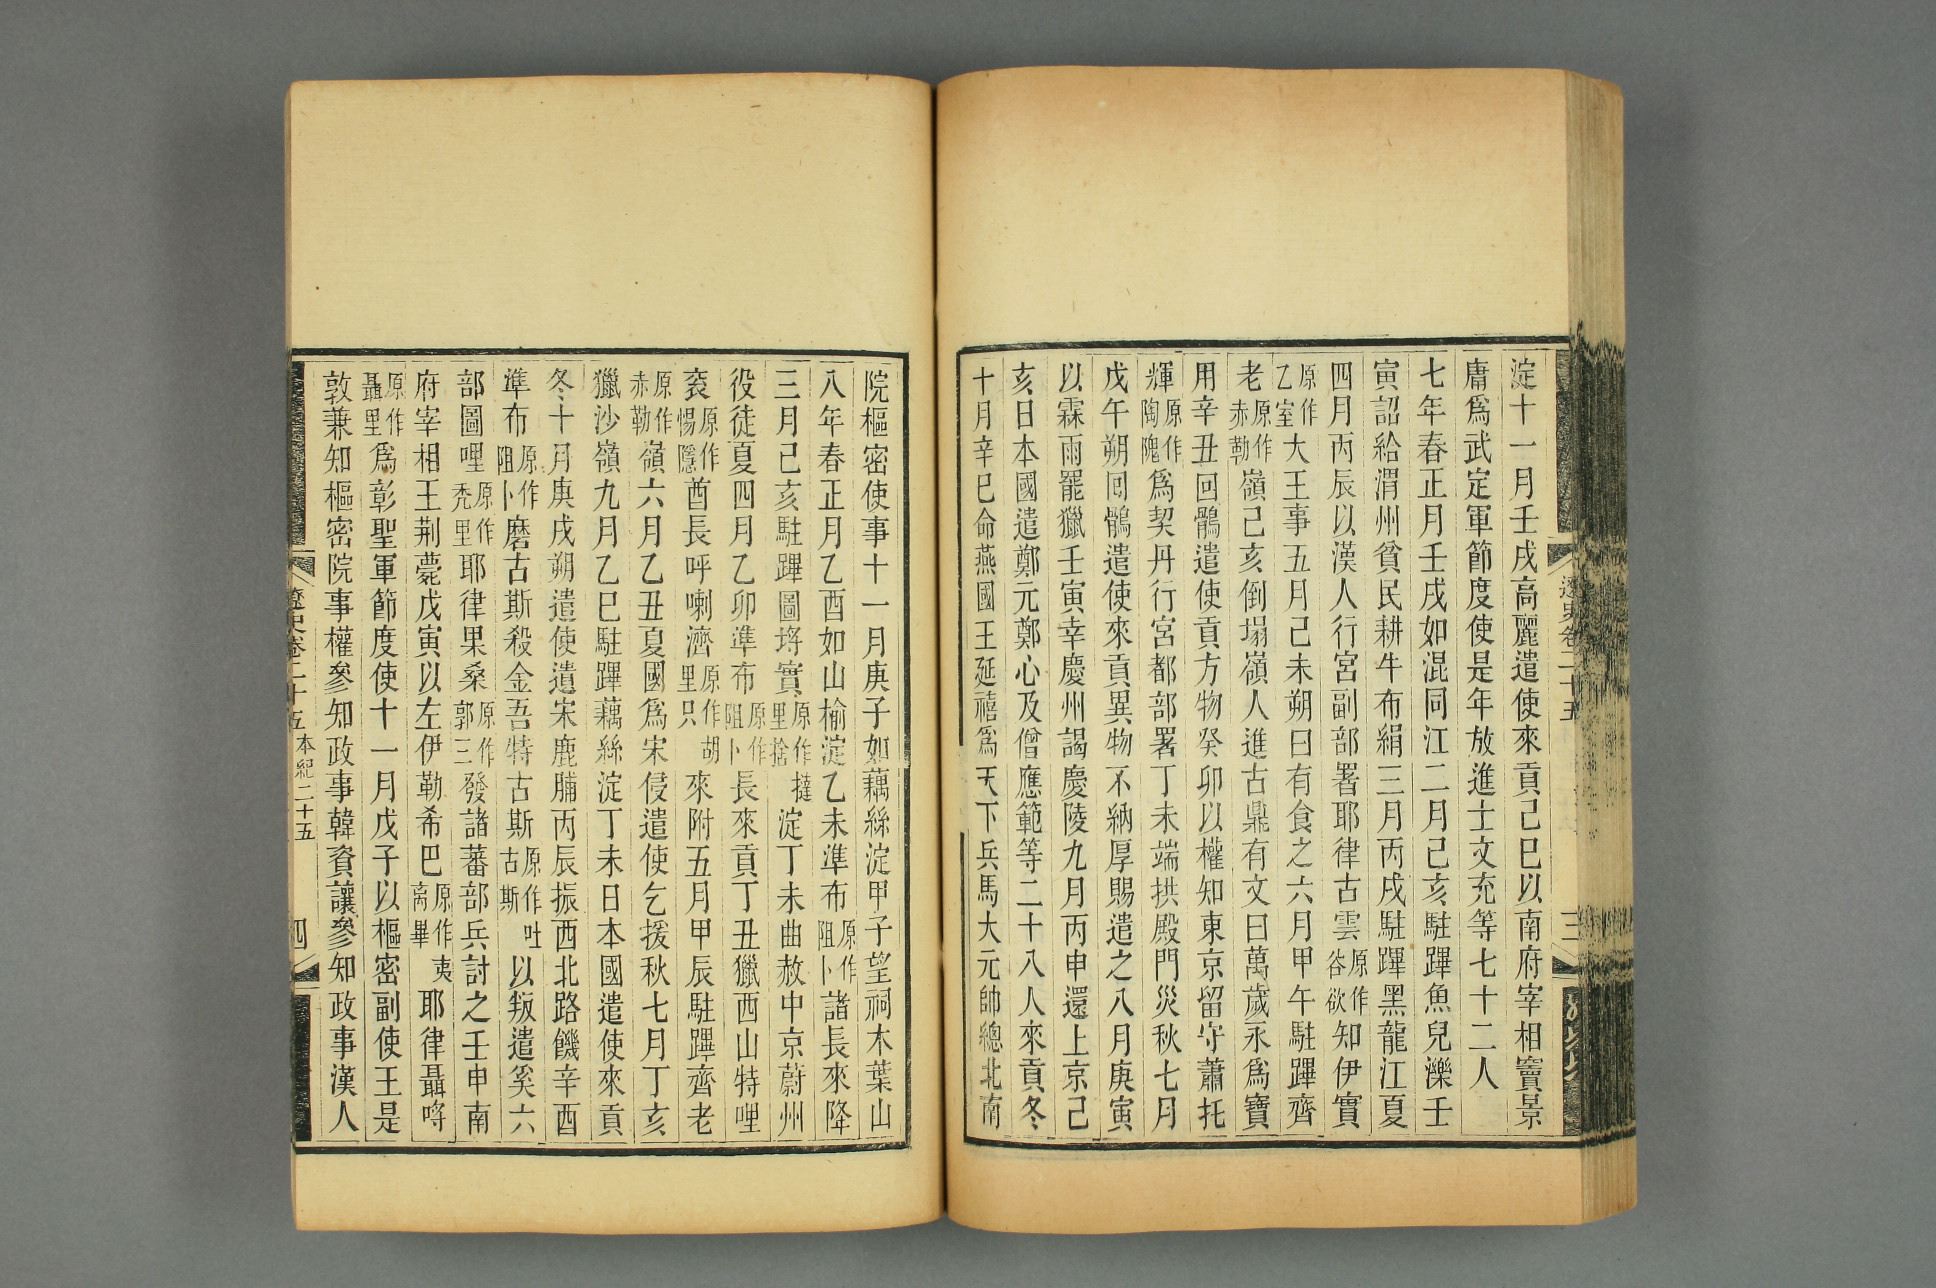 淀十一月壬戌高麗遣使來貢己巳以南府宰相竇景
庸爲武定軍節度使是年放進士文充等七十二人
七年春正月壬戌如混同江二月己亥駐蹕魚兒濼壬
寅詔給渭州貧民耕牛布絹三月丙戌駐蹕黑龍江夏
四月丙辰以漢人行宮副部署耶律古雲原作谷欲知伊實
原作乙室大王事五月己未朔日有食之六月甲午駐蹕齊
老原作赤勒嶺己亥倒塌嶺人進古鼎有文曰萬歲永爲寶
用辛丑回鶻遣使貢方物癸卯以權知東京留守蕭托
輝原作陶隗爲契丹行宮都部署丁未端拱殿門災秋七月
戊午朔回鶻遣使來貢異物不納厚賜遣之八月庚寅
以霖雨罷獵壬寅幸慶州謁慶陵九月丙申還上京己
亥日本國遣鄭元鄭心及僧應範等二十八人來貢冬
十月辛巳命燕國王延禧爲天下兵馬大元帥總北南
遼史卷二十五
三
院樞密使事十一月庚子如藕絲淀甲子望祠木葉山
八年春正月乙酉如山榆淀乙未準布原作阻卜諸長來降
三月己亥駐蹕圖塔實原作撻里捨淀丁未曲赦中京蔚州
役徒夏四月乙卯準布原作阻卜長來貢丁丑獵西山特哩
袞原作惕隱酋長呼喇濟原作胡里只來附五月甲辰駐蹕齊老
原作赤勒嶺六月乙丑夏國爲宋侵遣使乞援秋七月丁亥
獵沙嶺九月乙巳駐蹕藕絲淀丁未日本國遣使來貢
冬十月庚戌朔遣使遺宋鹿脯丙辰振西北路饑辛酉
準布原作阻卜磨古斯殺金吾特古斯原作吐古斯以叛遣奚六
部圖哩原作禿里耶律果桑原作郭三發諸蕃部兵討之壬申南
府宰相王荆薨戊寅以左伊勒希巴原作夷离畢耶律聶哷
原作聶里爲彰聖軍節度使十一月戊子以樞密副使王是
敦兼知樞密院事權參知政事韓資讓參知政事漢人
遼史卷二十五 本紀二十五
四